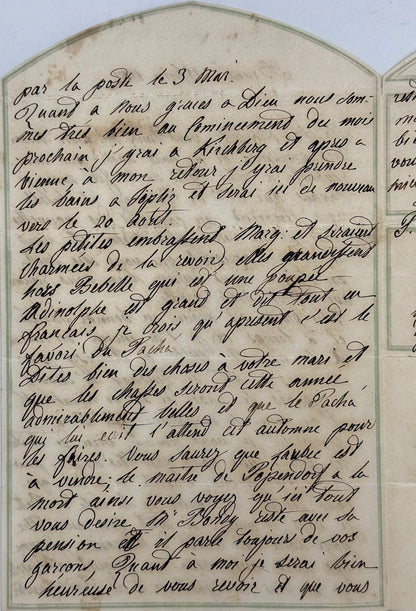 par la poste le 3 Mai.
Quand a nous graces a Dieu nous som-
mes tres bien au Comincement du mois
prochain j'yrai a Kirchberg et apres a
vienne, à mon retour j'yrai prendre
les bains a Töplitz et serai ici de nouveau
vers le 20 Aout.
Les petites embrassent Marg: et seraient
charmées de la revoir elles grandissent
hors Bebelle qui est une poupée
est grand et dit tout en
français, je crois qu'apresent c'est le
favori du Pacha
Dites bien des choses à votre mari et
que les chasses seront cette année
admirablement belles et que le Pacha
qui lui ecrit l'attend cet automne pour
les faires. Vous saurez que est
à vendre; le maitre de Popendorf a la
mort ainsi vous voyez qu'ici tout
vous desire, Mr reste avec sa
pension et il parle toujours de vos
garçons, Quand à moi je serai bien
heureuse de vous revoir et que vous